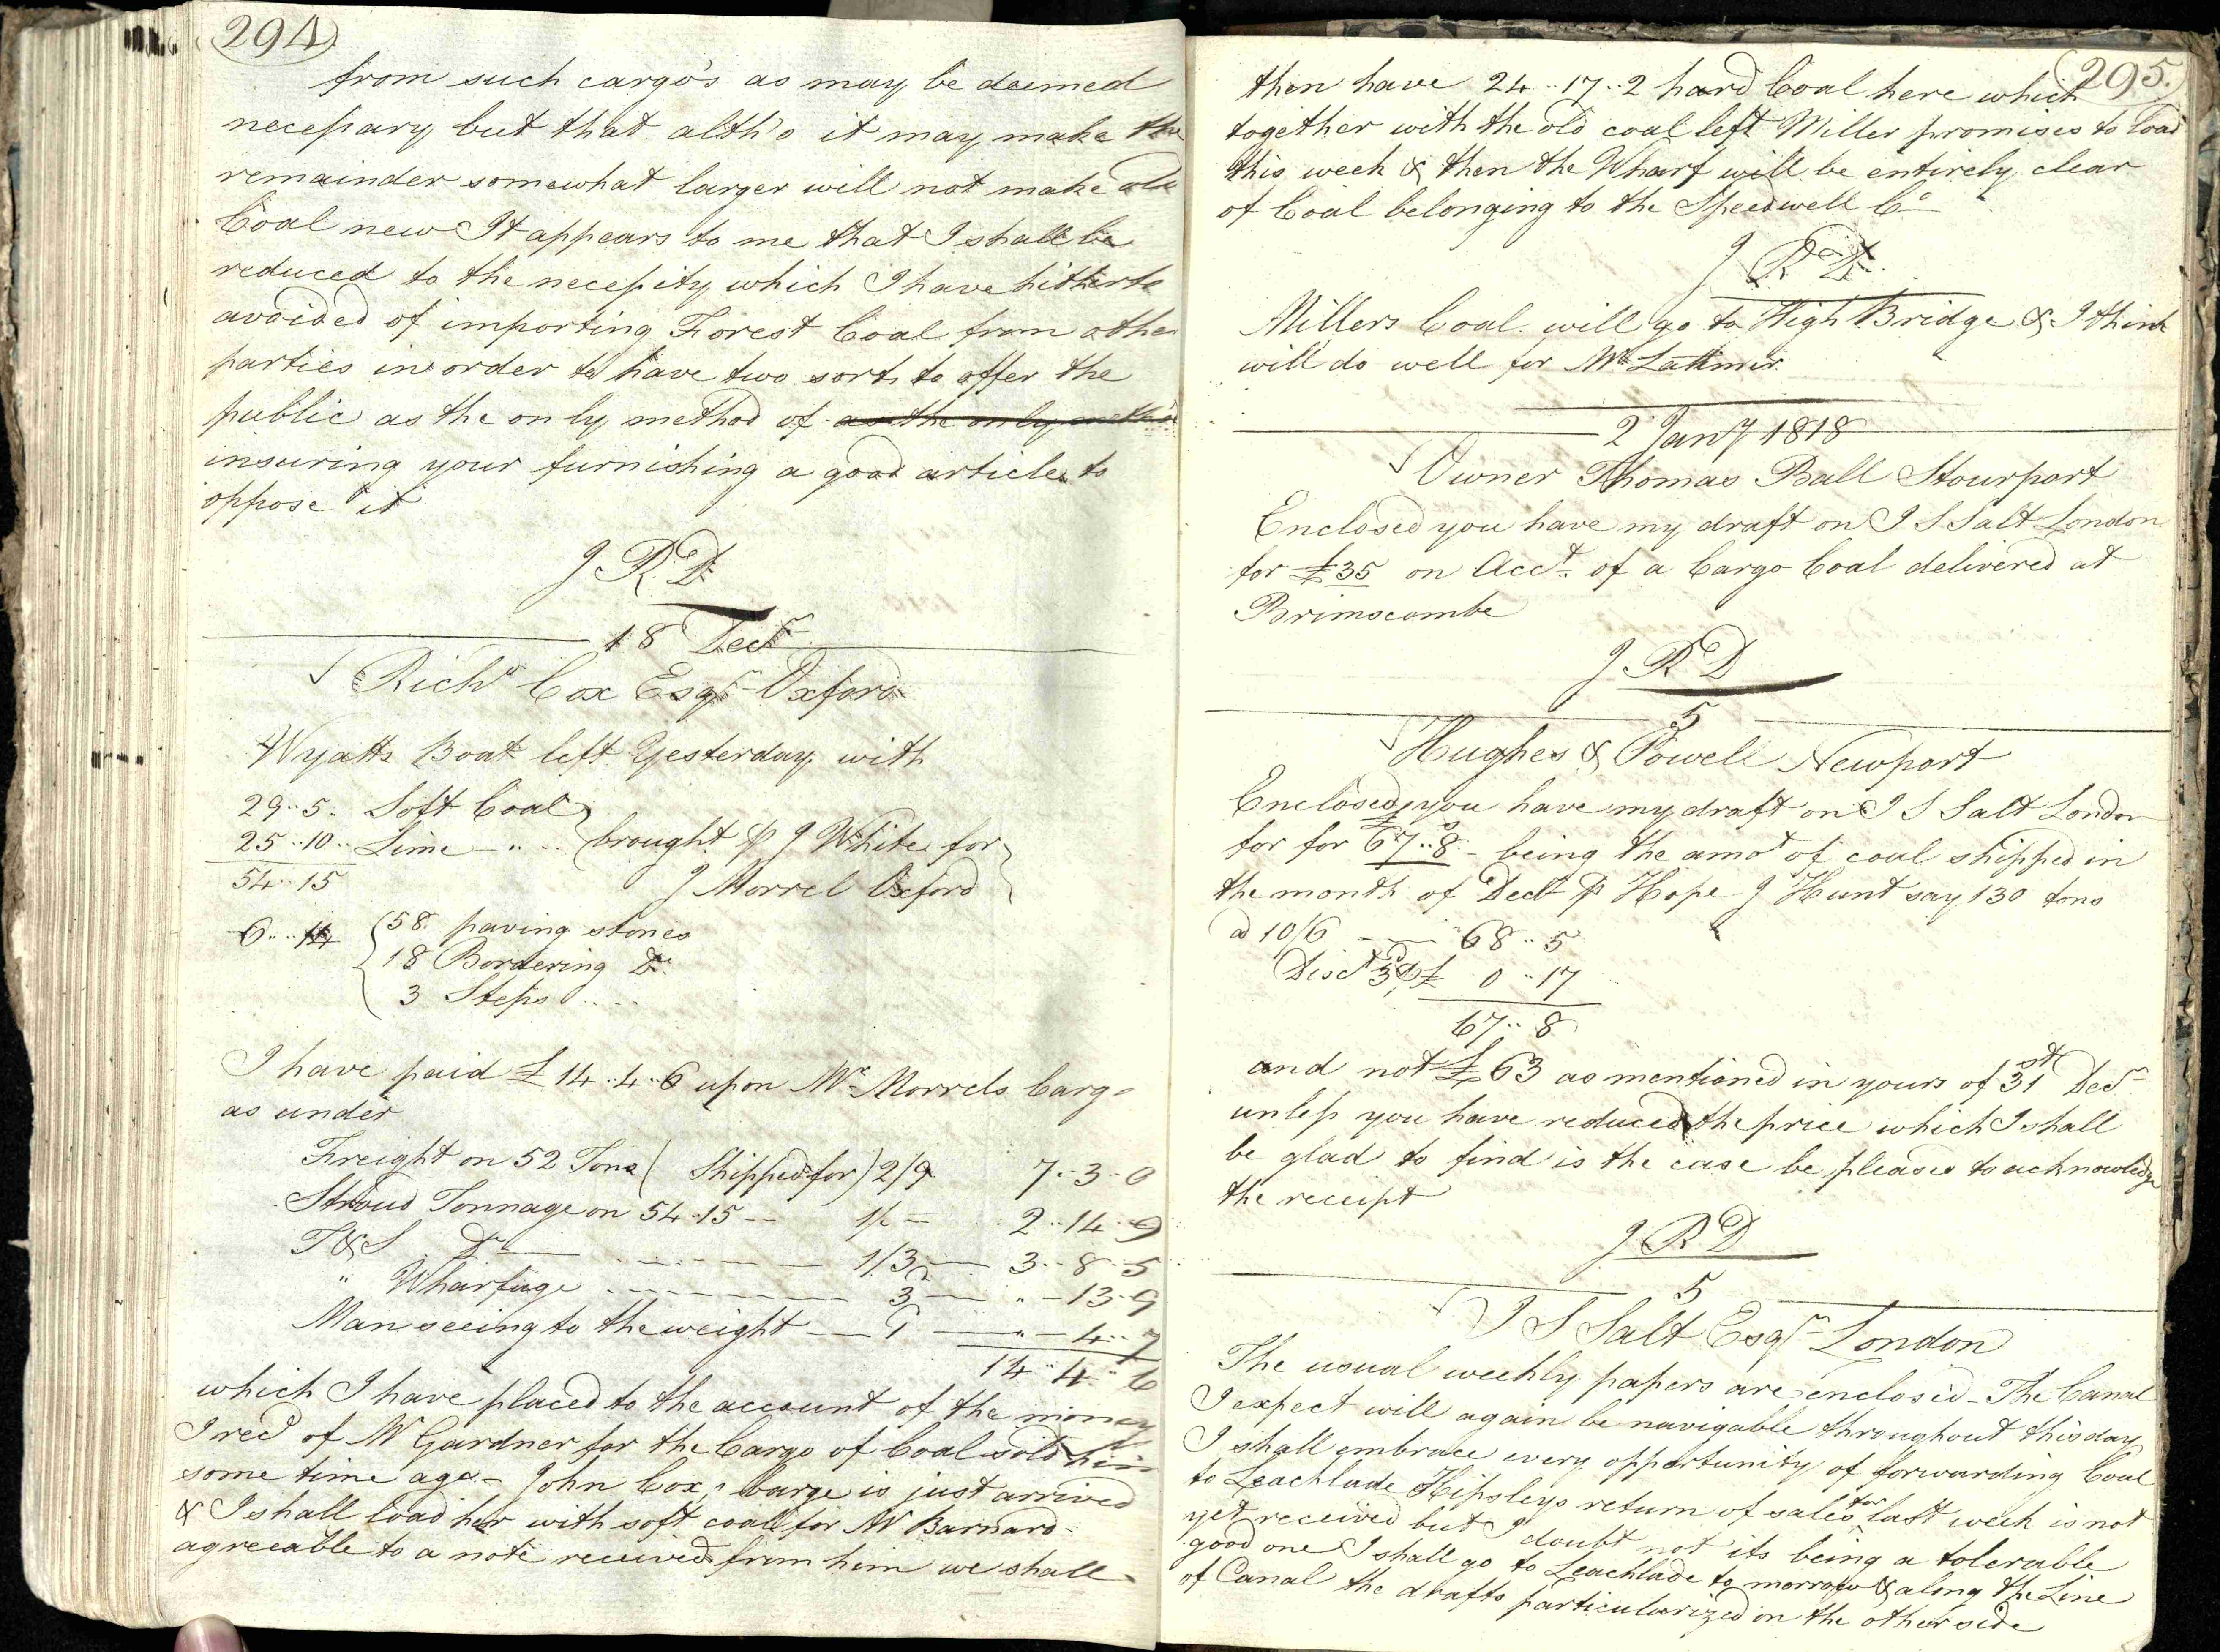 294
from such cargo's as may be deemed
necessary but that altho' it may make the
remainder somewhat larger will not make old
Coal new It appears to me that I shall be
reduced to the necessity which I have hitherto
avoided of importing Forest Coal from other
parties in order to have two sorts to offer the
public as the only method of as the only method
insuring your furnishing a good article to
oppose it
J R D
18 Decr
Richd Cox Esqr Oxford
Wyatts Boat left Yesterday with
29..5.. Soft Coal
25..10.. Lime - " - brought p J White for
54..15 J Morrel Oxford
6..14 58 paving stones
18 Bordering Do
3 Steps ....
I have paid £14..4..6 upon Mr Morrels Cargo
as under
Freight on 52 Tons (Shipped for) 2/9 7..3..0
Stroud Tonnage on 54..15 -- 1/- 2..14..9
T&S Do 1/3 3..8..5
" Wharfage 3d " 13..9
Man seeing to the weight 1 " 4..7
14..4..6
which I have placed to the account of the money
I recd of Mr Gardner for the Cargo of Coal sold him
some time ago - John Cox's barge is just arrived
& I shall load her with soft coal for Mr Barnard -
agreeable to a note received from him we shall
295.
then have 24..17..2 hard Coal here which
together with the old coal left Miller promises to load
this week & then the Wharf will be entirely clear
of Coal belonging to the Speedwell Co
J R D
Millers Coal will go to High Bridge & I think
will do well for Mr Lattimer
2 Jany 1818
Owner Thomas Ball Stourport
Enclosed you have my draft on J S Salt London
for £35 on Acct. of a Cargo Coal delivered at
Brimscombe
J R D
5
Hughes & Powell Newport
Enclosed you have my draft on J S Salt London
for for £67..8s - being the amot of coal shipped in
the month of Decr p Hope J Hunt say 130 tons
ad 10/6 68..5
Disct 3d p £ 0..17
67..8
and not £63 as mentioned in yours of 31st Decr
unless you have reduced the price which I shall
be glad to find is the case be pleased to acknowledge
the receipt
J R D
5
J S Salt Esqr London
The usual weekly papers are enclosed - The Canal
I expect will again be navigable throughout this day
I shall embrace every opportunity of forwarding Coal
to Leachlade Hipsleys return of sales for last week is not
yet received but I doubt not its being a tolerable
good one I shall go to Leachlade to morrow & along the Line
of Canal the drafts particularized on the other side